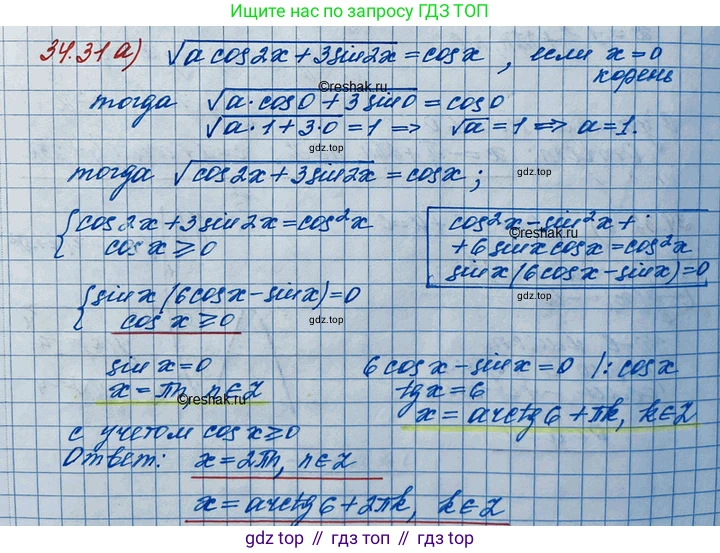 Ищите нас по запросу ГДЗ ТОП
34.31 а) √(a cos2x + 3sin2x) = cosx, если x = 0 корень
©reshak.ru
тогда √(a·cos0 + 3sin0) = cos0
√(a·1 + 3·0) = 1 => √a = 1 => a = 1.
gdz.top
тогда √(cos2x + 3sin2x) = cosx;
gdz.top
{cos2x + 3sin2x = cos²x
cosx ≥ 0
cos²x - sin²x +
+ 6sinxcosx = cos²x
sinx(6cosx - sinx) = 0
gdz.top
{sinx(6cosx - sinx) = 0
cosx ≥ 0
gdz.top
sinx = 0
x = πn, n∈Z
©reshak.ru
6cosx - sinx = 0 /: cosx
tgx = 6
x = arctg6 + πk, k∈Z
gdz.top
с учетом cosx ≥ 0
Ответ: x = 2πn, n∈Z
x = arctg6 + 2πk, k∈Z
gdz.top
gdz.top // гдз.топ // gdz.top